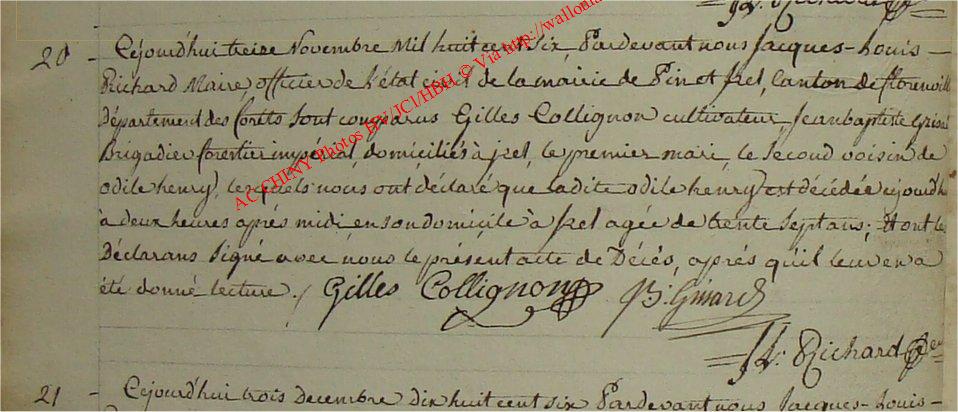 J L: Richard
20 - Cejourd'hui treize Novembre Mil huit cent six Pardevant nous Jacques-Louis-
Richard Maire, officier de l'état civil de la mairie de Pin et Izel, Canton de florenville
Département des forêts sont comparus Gilles Collignon cultivateur, Jean baptiste
Brigadier forestier impérial, domiciliés à Izel, le premier mari, le second voisin de
odile henry, lesquels nous ont déclaré que ladite odile henry est décédée cejourd'h
à deux heures après midi en son domicile à Izel agée de trente sept ans; Et ont les
Déclarans signé avec nous le présent acte de Décès, après qu'il leur en a
été donné lecture. / Gilles Collignon
J L: Richard
21 - Cejourd'hui trois decembre dix huit cent six Pardevant nous Jacques-Louis-
ACCHENY Photos BV/JCl/HBH © Via http://wallonia